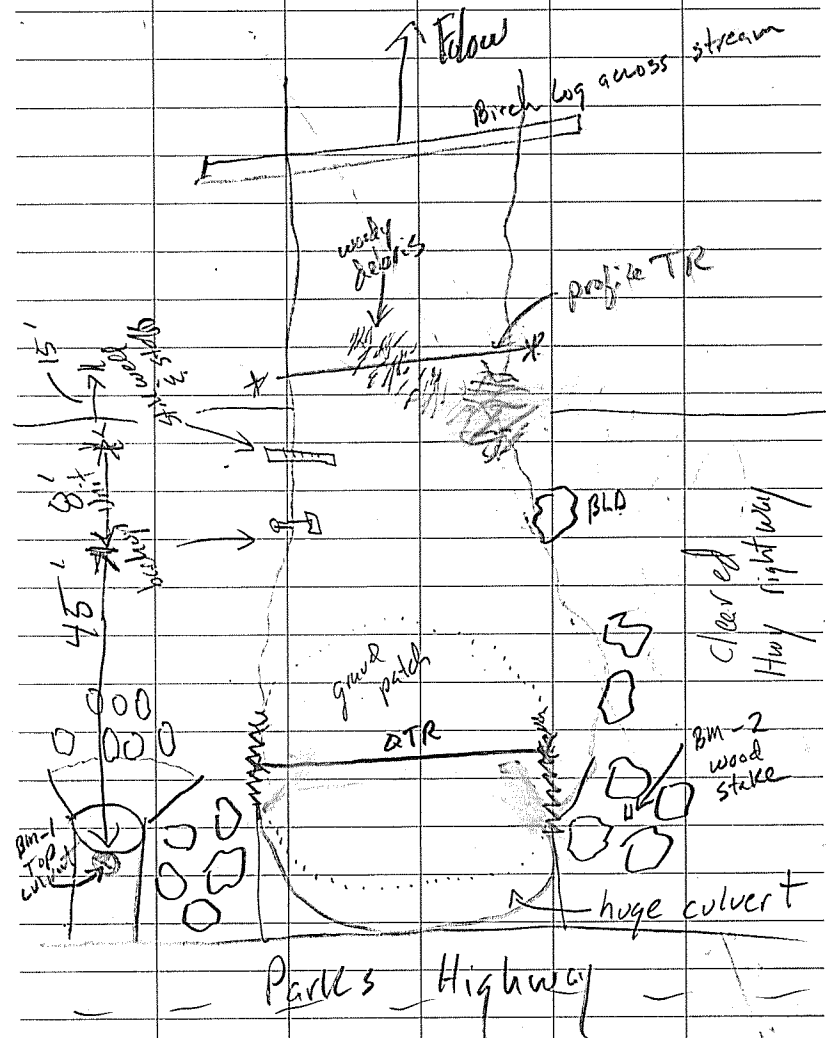 Flow
Birch Log across stream
woody
debris
profile TR
15'
stillwell
& stdb
8'
45'
BLD
Cleared
Hwy right way
gravel
patch
QTR
BM-2
wood
stake
BM-1
Top
culvert
huge culvert
Parks Highway